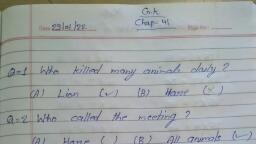 G.K
Date 29/01/22 Chap-41
Q=1 Who killed many animals daily?
(A) Lion (✓) (B) Hare (×)
Q=2 Who called the meeting?
(A) Hare ( ) (B) All animals (✓)